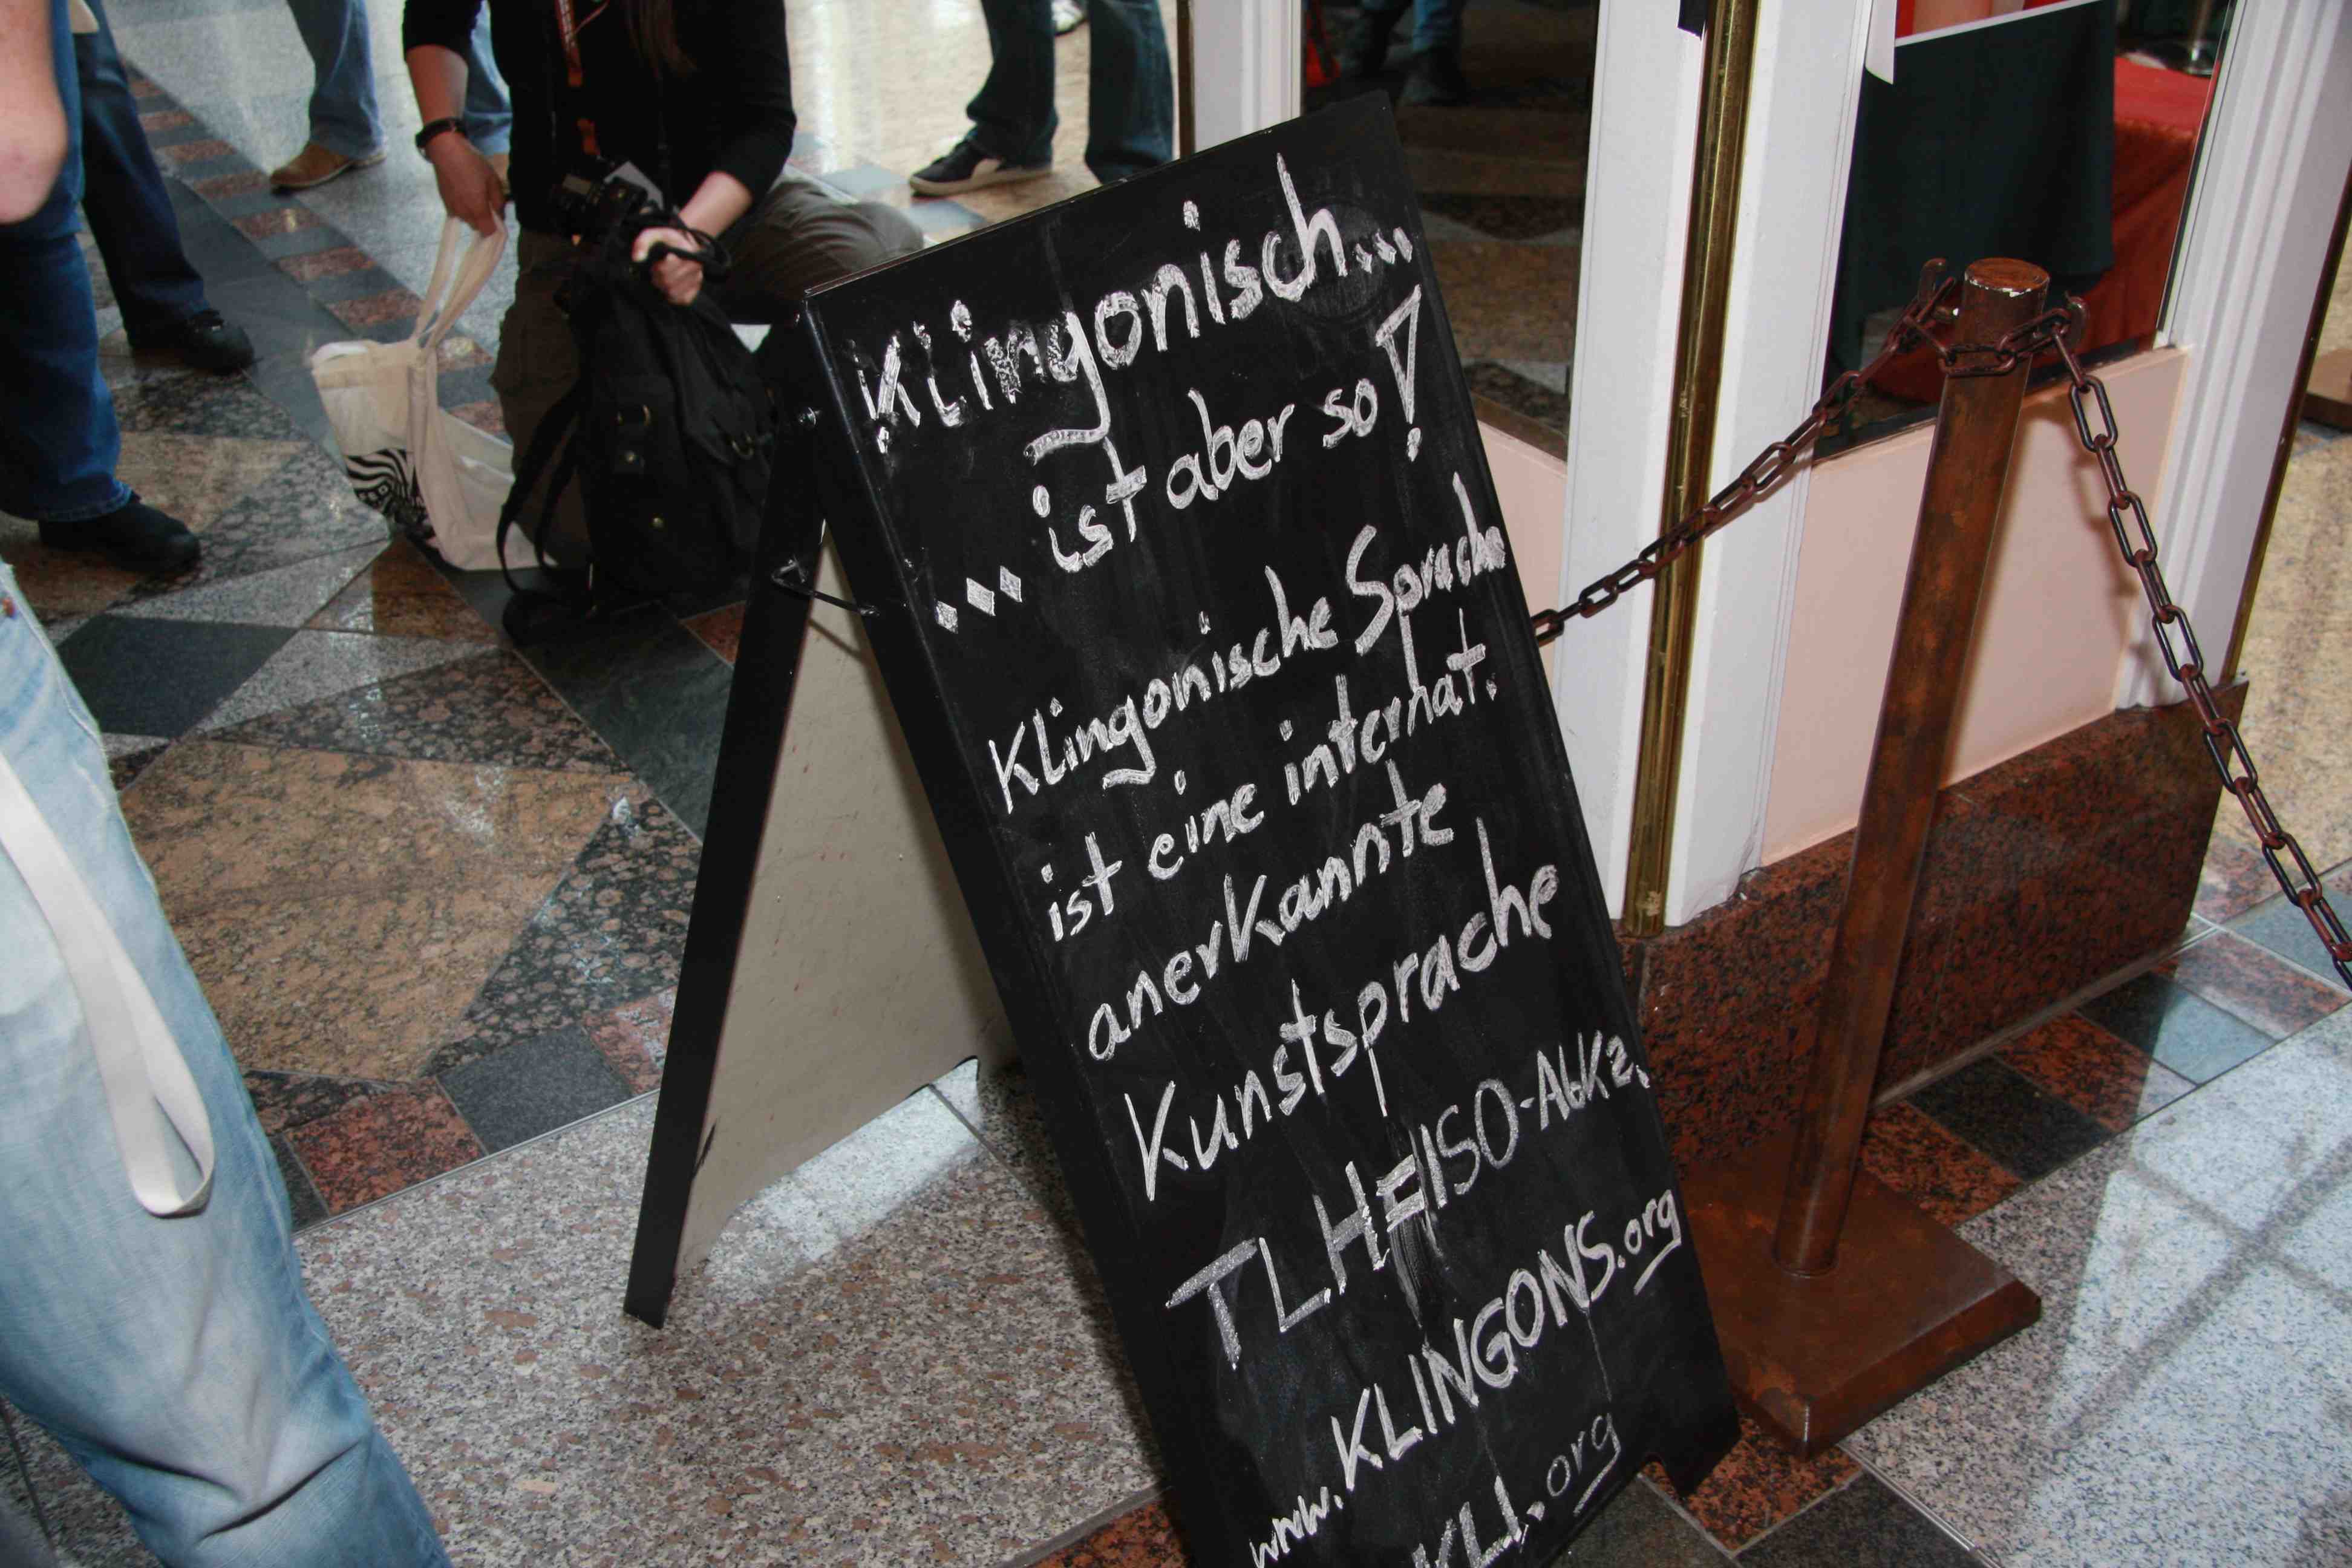 Klingonisch...
... ist aber so!
Klingonische Sprache
ist eine internat.
anerkannte
Kunstsprache
TLH=ISO-Abkz.
www.KLINGONS.org
KLI.org